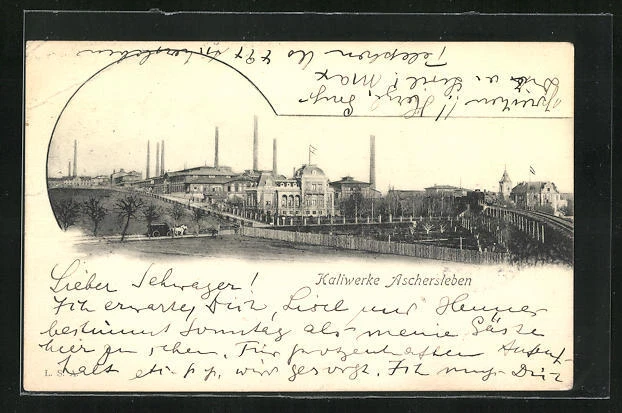 Kaliwerke Aschersleben
Lieber Schwager!
Ich erwarte, Dich, Lisel und Henner
bestimmt Sonntag als meine Gäste
hier zu sehen. Für protzenhaften Aufent-
halt etc. p.p. wird gesorgt. Ich muß Dich
L. S. A.
Telephon No
Herzl. Gruß
Max